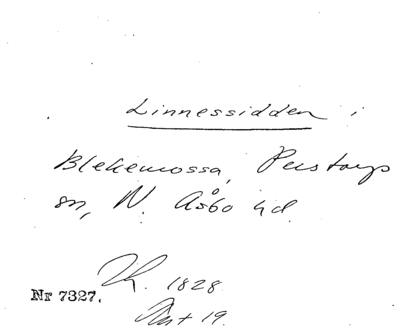 Linnessidden i
Blekemossa, Perstorps
sn, N. Åsbo hd.
K. 1828
Nr 7327.
Ant 19.